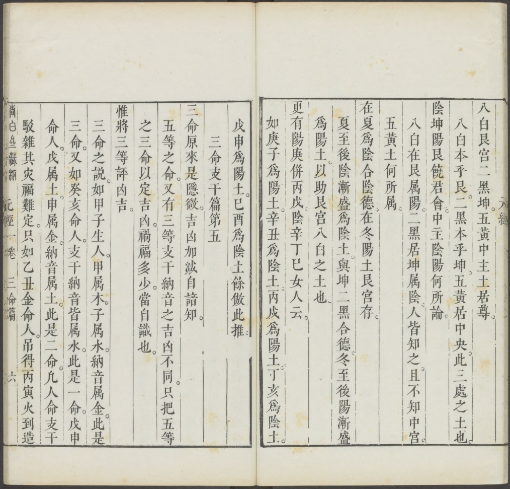 八白艮宫二黑坤五黄中主土居尊
八白本乎艮二黑本乎坤五黄居中央此三處之土也
陰坤陽艮饒君會中主陰陽何所論
八白在艮属陽二黑居坤属陰人皆知之且不知中宫
五黄土何所属
在夏爲陰合陰德在冬陽土艮宫存
夏至後陰漸盛爲陰土與坤二黑合德冬至後陽漸盛
爲陽土以助艮宫八白之土也
更有陽庚併丙戊陰辛丁巳女人云
如庚子爲陽土辛丑爲陰土丙戌爲陽土丁亥爲陰土
戊申爲陽土己酉爲陰土餘倣此推
三命支干篇第五
三命原來是隱微吉凶加諒自詳知
五等之命又有三等支干納音之吉凶不同只把五等
之三命以定吉凶禍福多少當自識也
惟將三等評凶吉
三命之說如甲子生人甲属木子属水納音属金此是
三命又如癸亥命人支干納音皆属水此是一命戊申
命人戊属土申属金納音属土此是二命凡人命支干
駁雜其灾福難定只如乙丑金命人吊得丙寅火到造
元經一卷 三命篇 六